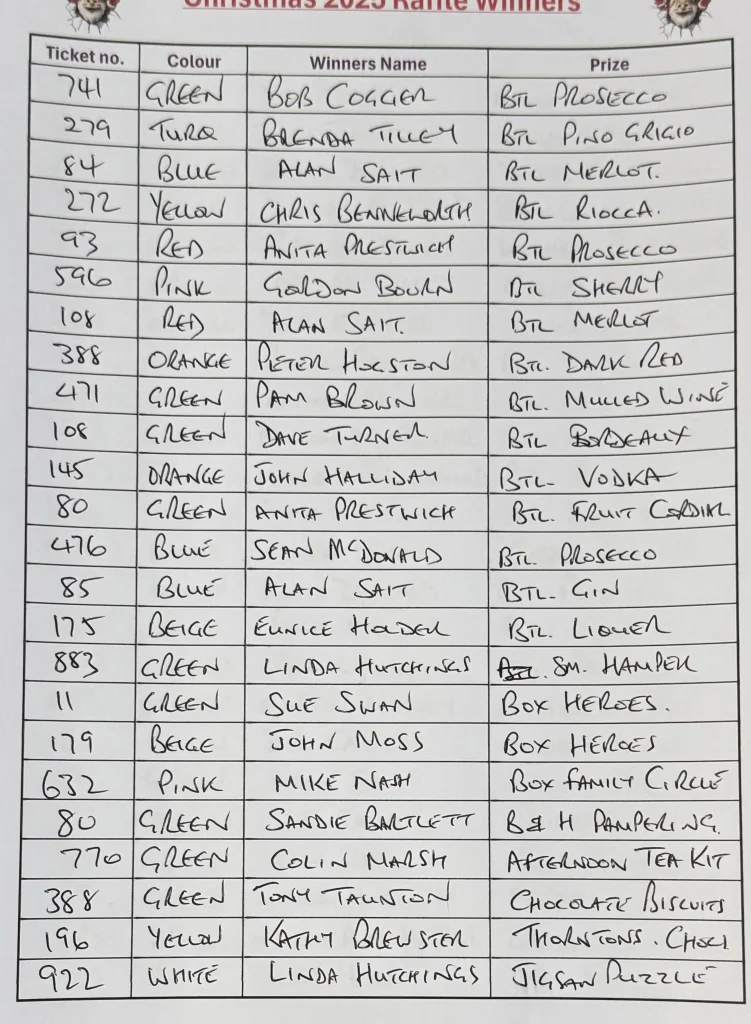 Christmas 2025 Raffle Winners
Ticket no. Colour Winners Name Prize
741 GREEN BOB COGGER BTL PROSECCO
279 TURQ BRENDA TILLEY BTL PINO GRIGIO
84 BLUE ALAN SAIT BTL MERLOT.
272 YELLOW CHRIS BENNEWORTH BTL RIOCCA.
93 RED ANITA PRESTWICH BTL PROSECCO
596 PINK GORDON BOURN BTL SHERRY
108 RED ALAN SAIT. BTL MERLOT
388 ORANGE PETER HOLSTON BTL. DARK RED
471 GREEN PAM BROWN BTL. MULLED WINE
108 GREEN DAVE TURNER BTL BORDEAUX
145 ORANGE JOHN HALLIDAY BTL- VODKA
80 GREEN ANITA PRESTWICH BTL. FRUIT CORDIAL
476 BLUE SEAN MCDONALD BTL. PROSECCO
85 BLUE ALAN SAIT BTL. GIN
175 BEIGE EUNICE HOLDER BTL. LIQUER
883 GREEN LINDA HUTCHINGS SM. HAMPER
11 GREEN SUE SWAN BOX HEROES.
179 BEIGE JOHN MOSS BOX HEROES
632 PINK MIKE NASH BOX FAMILY CIRCLE
80 GREEN SANDIE BARTLETT B & H PAMPERING.
770 GREEN COLIN MARSH AFTERNOON TEA KIT
388 GREEN TONY TAUNTON CHOCOLATE BISCUITS
196 YELLOW KATHY BREWSTER THORNTONS. CHOCI
922 WHITE LINDA HUTCHINGS JIGSAW PUZZLE